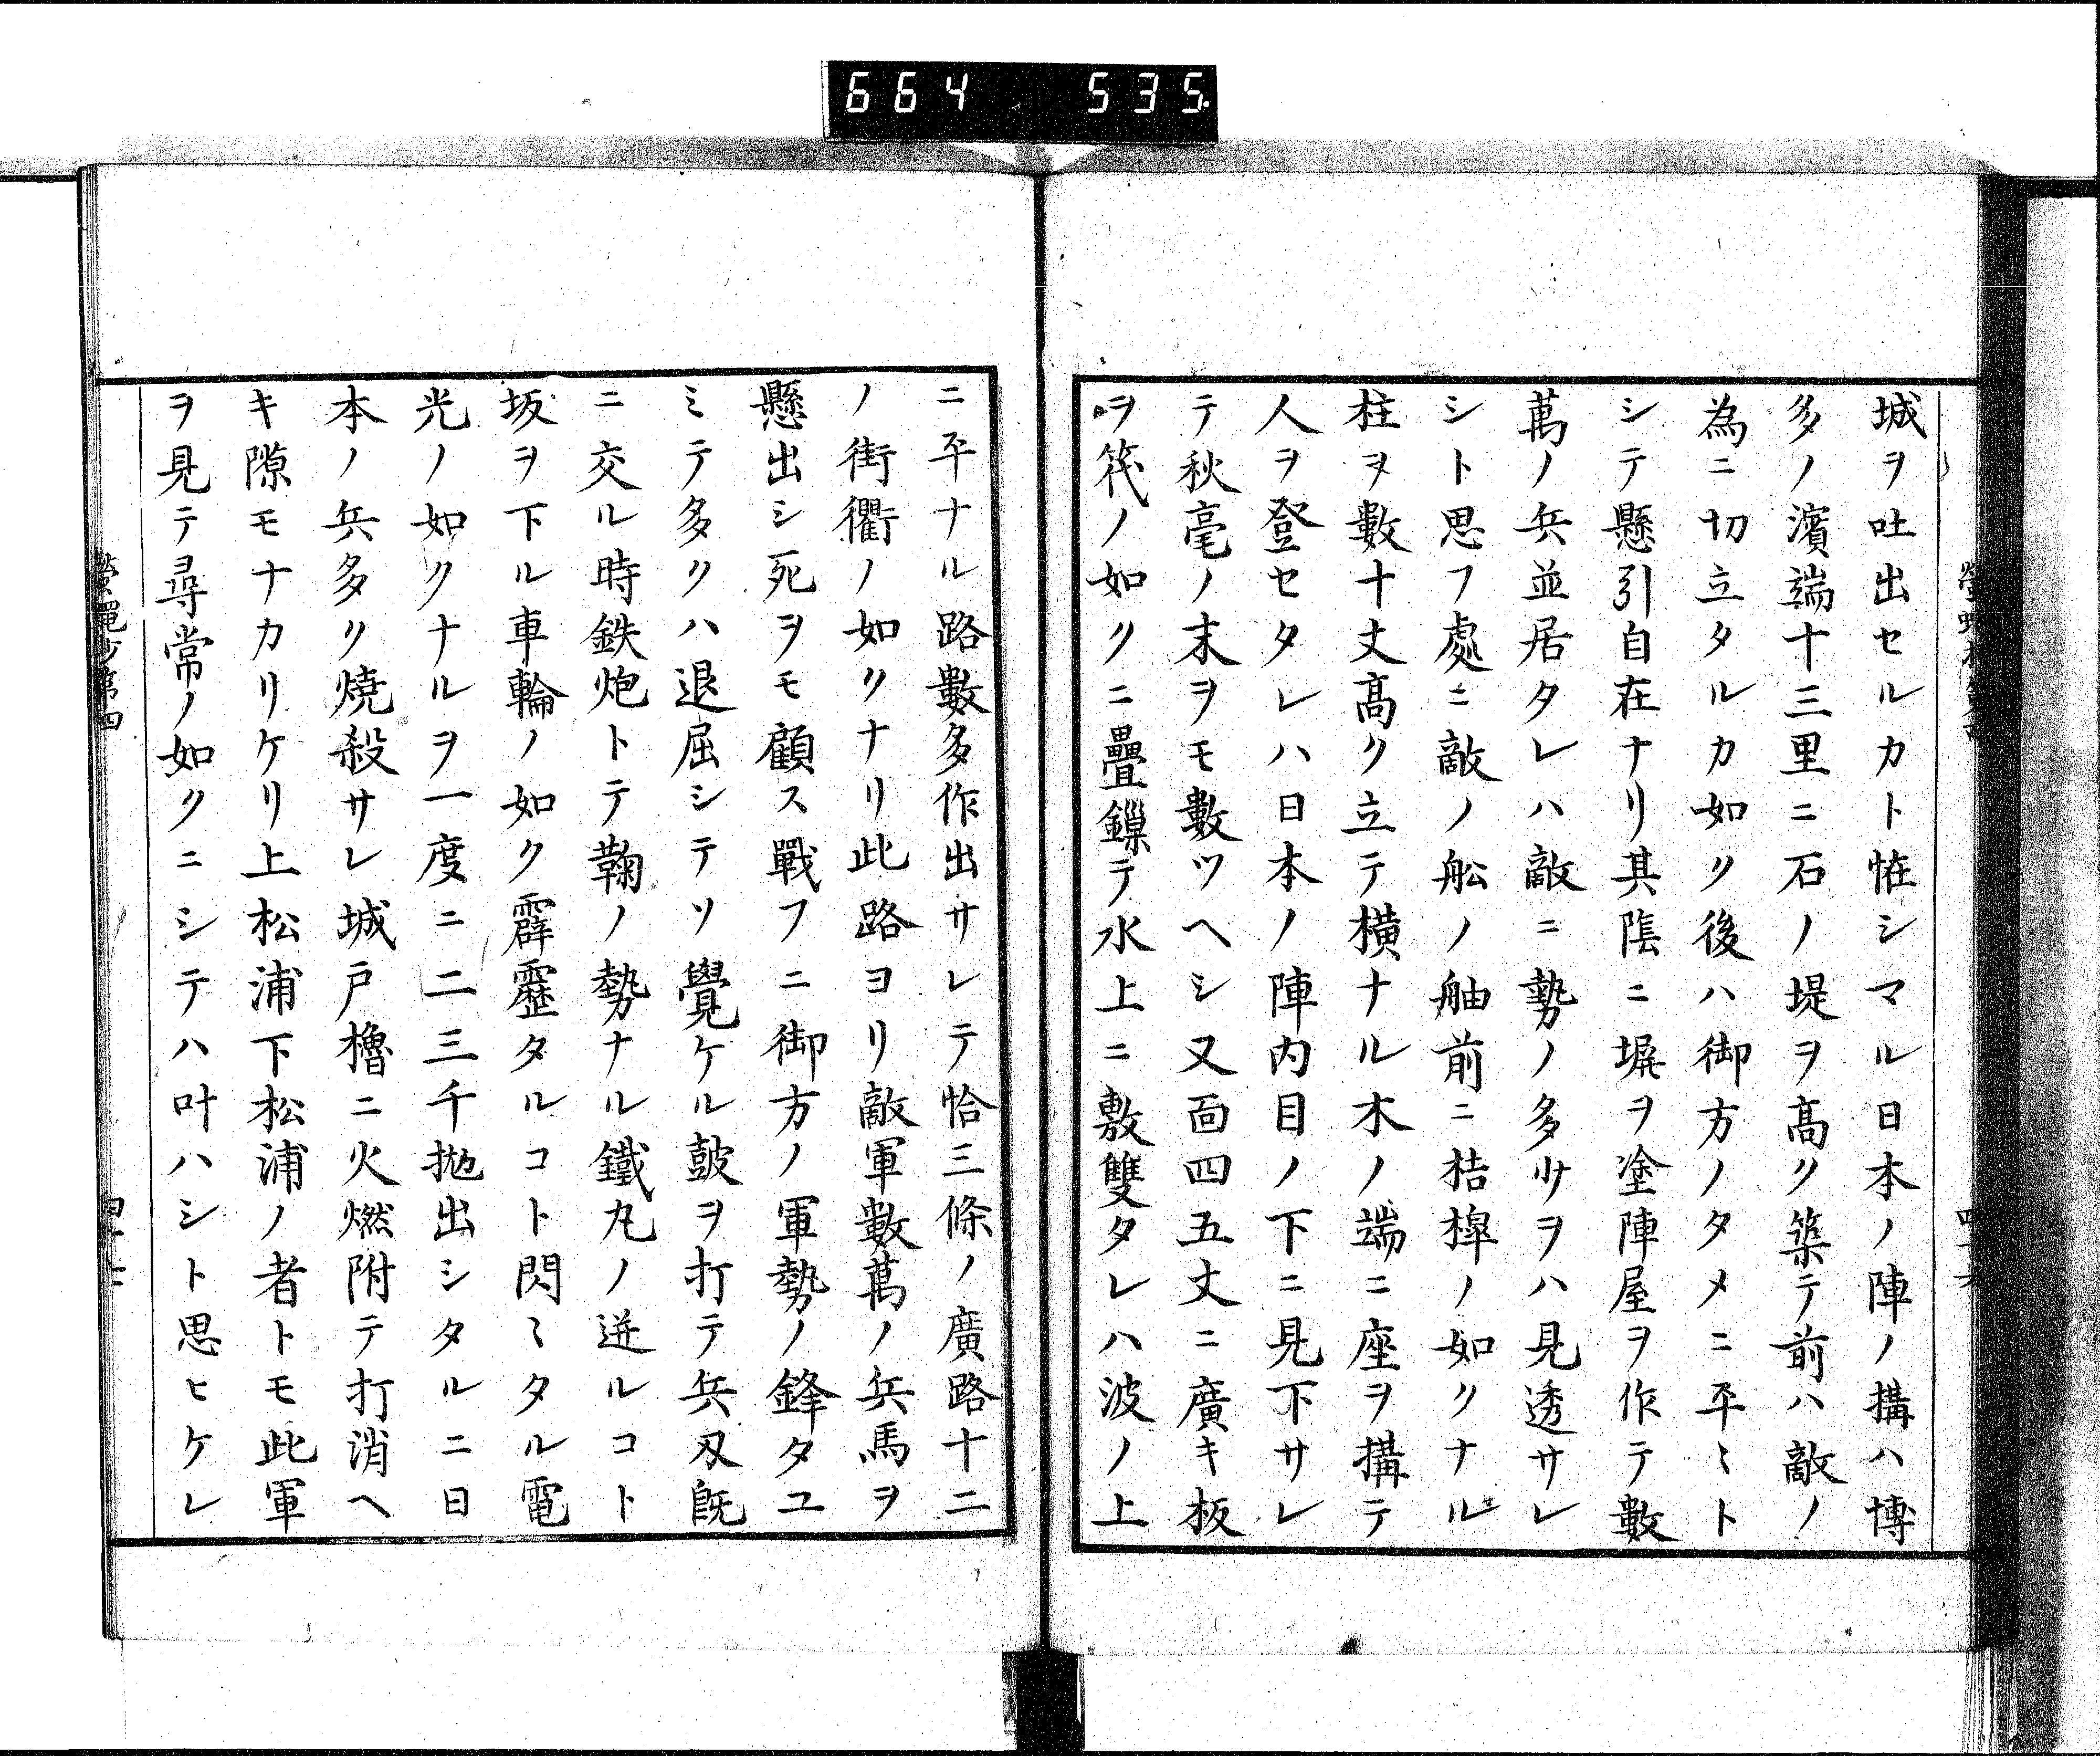 664 535
城ヲ吐出セルカト恠シマル日本ノ陣ノ搆ハ博
多ノ濱端十三里ニ石ノ堤ヲ高ク築テ前ハ敵ノ
為ニ切立タルカ如ク後ハ御方ノタメニ平ミト
シテ懸引自在ナリ其陰ニ塀ヲ塗陣屋ヲ作テ數
萬ノ兵並居タレハ敵ニ勢ノ多少ヲハ見透サレ
シト思フ處ニ敵ノ舩ノ舳前ニ桔槹ノ如クナル
柱ヲ數十丈高ク立テ横ナル木ノ端ニ座ヲ搆テ
人ヲ登セタレハ日本ノ陣内目ノ下ニ見下サレ
テ秋毫ノ末ヲモ數ツヘシ又面四五丈ニ廣キ板
ヲ筏ノ如クニ疊鏁テ水上ニ敷雙タレハ波ノ上
ニ平ナル路數多作出サレテ恰三條ノ廣路十二
ノ街衢ノ如クナリ此路ヨリ敵軍數萬ノ兵馬ヲ
懸出シ死ヲモ顧ス戰フニ御方ノ軍勢ノ鋒タユ
ミテ多クハ退屈シテソ覺ケル鼓ヲ打テ兵刄既
ニ交ル時鉄炮トテ鞠ノ勢ナル鐵丸ノ迸ルコト
坂ヲ下ル車輪ノ如ク霹靂タルコト閃ミタル電
光ノ如クナルヲ一度ニ二三千拋出シタルニ日
本ノ兵多ク燒殺サレ城戸櫓ニ火燃附テ打消ヘ
キ隙モナカリケリ上松浦下松浦ノ者トモ此軍
ヲ見テ尋常ノ如クニシテハ叶ハシト思ヒケレ
螢蠅抄第四